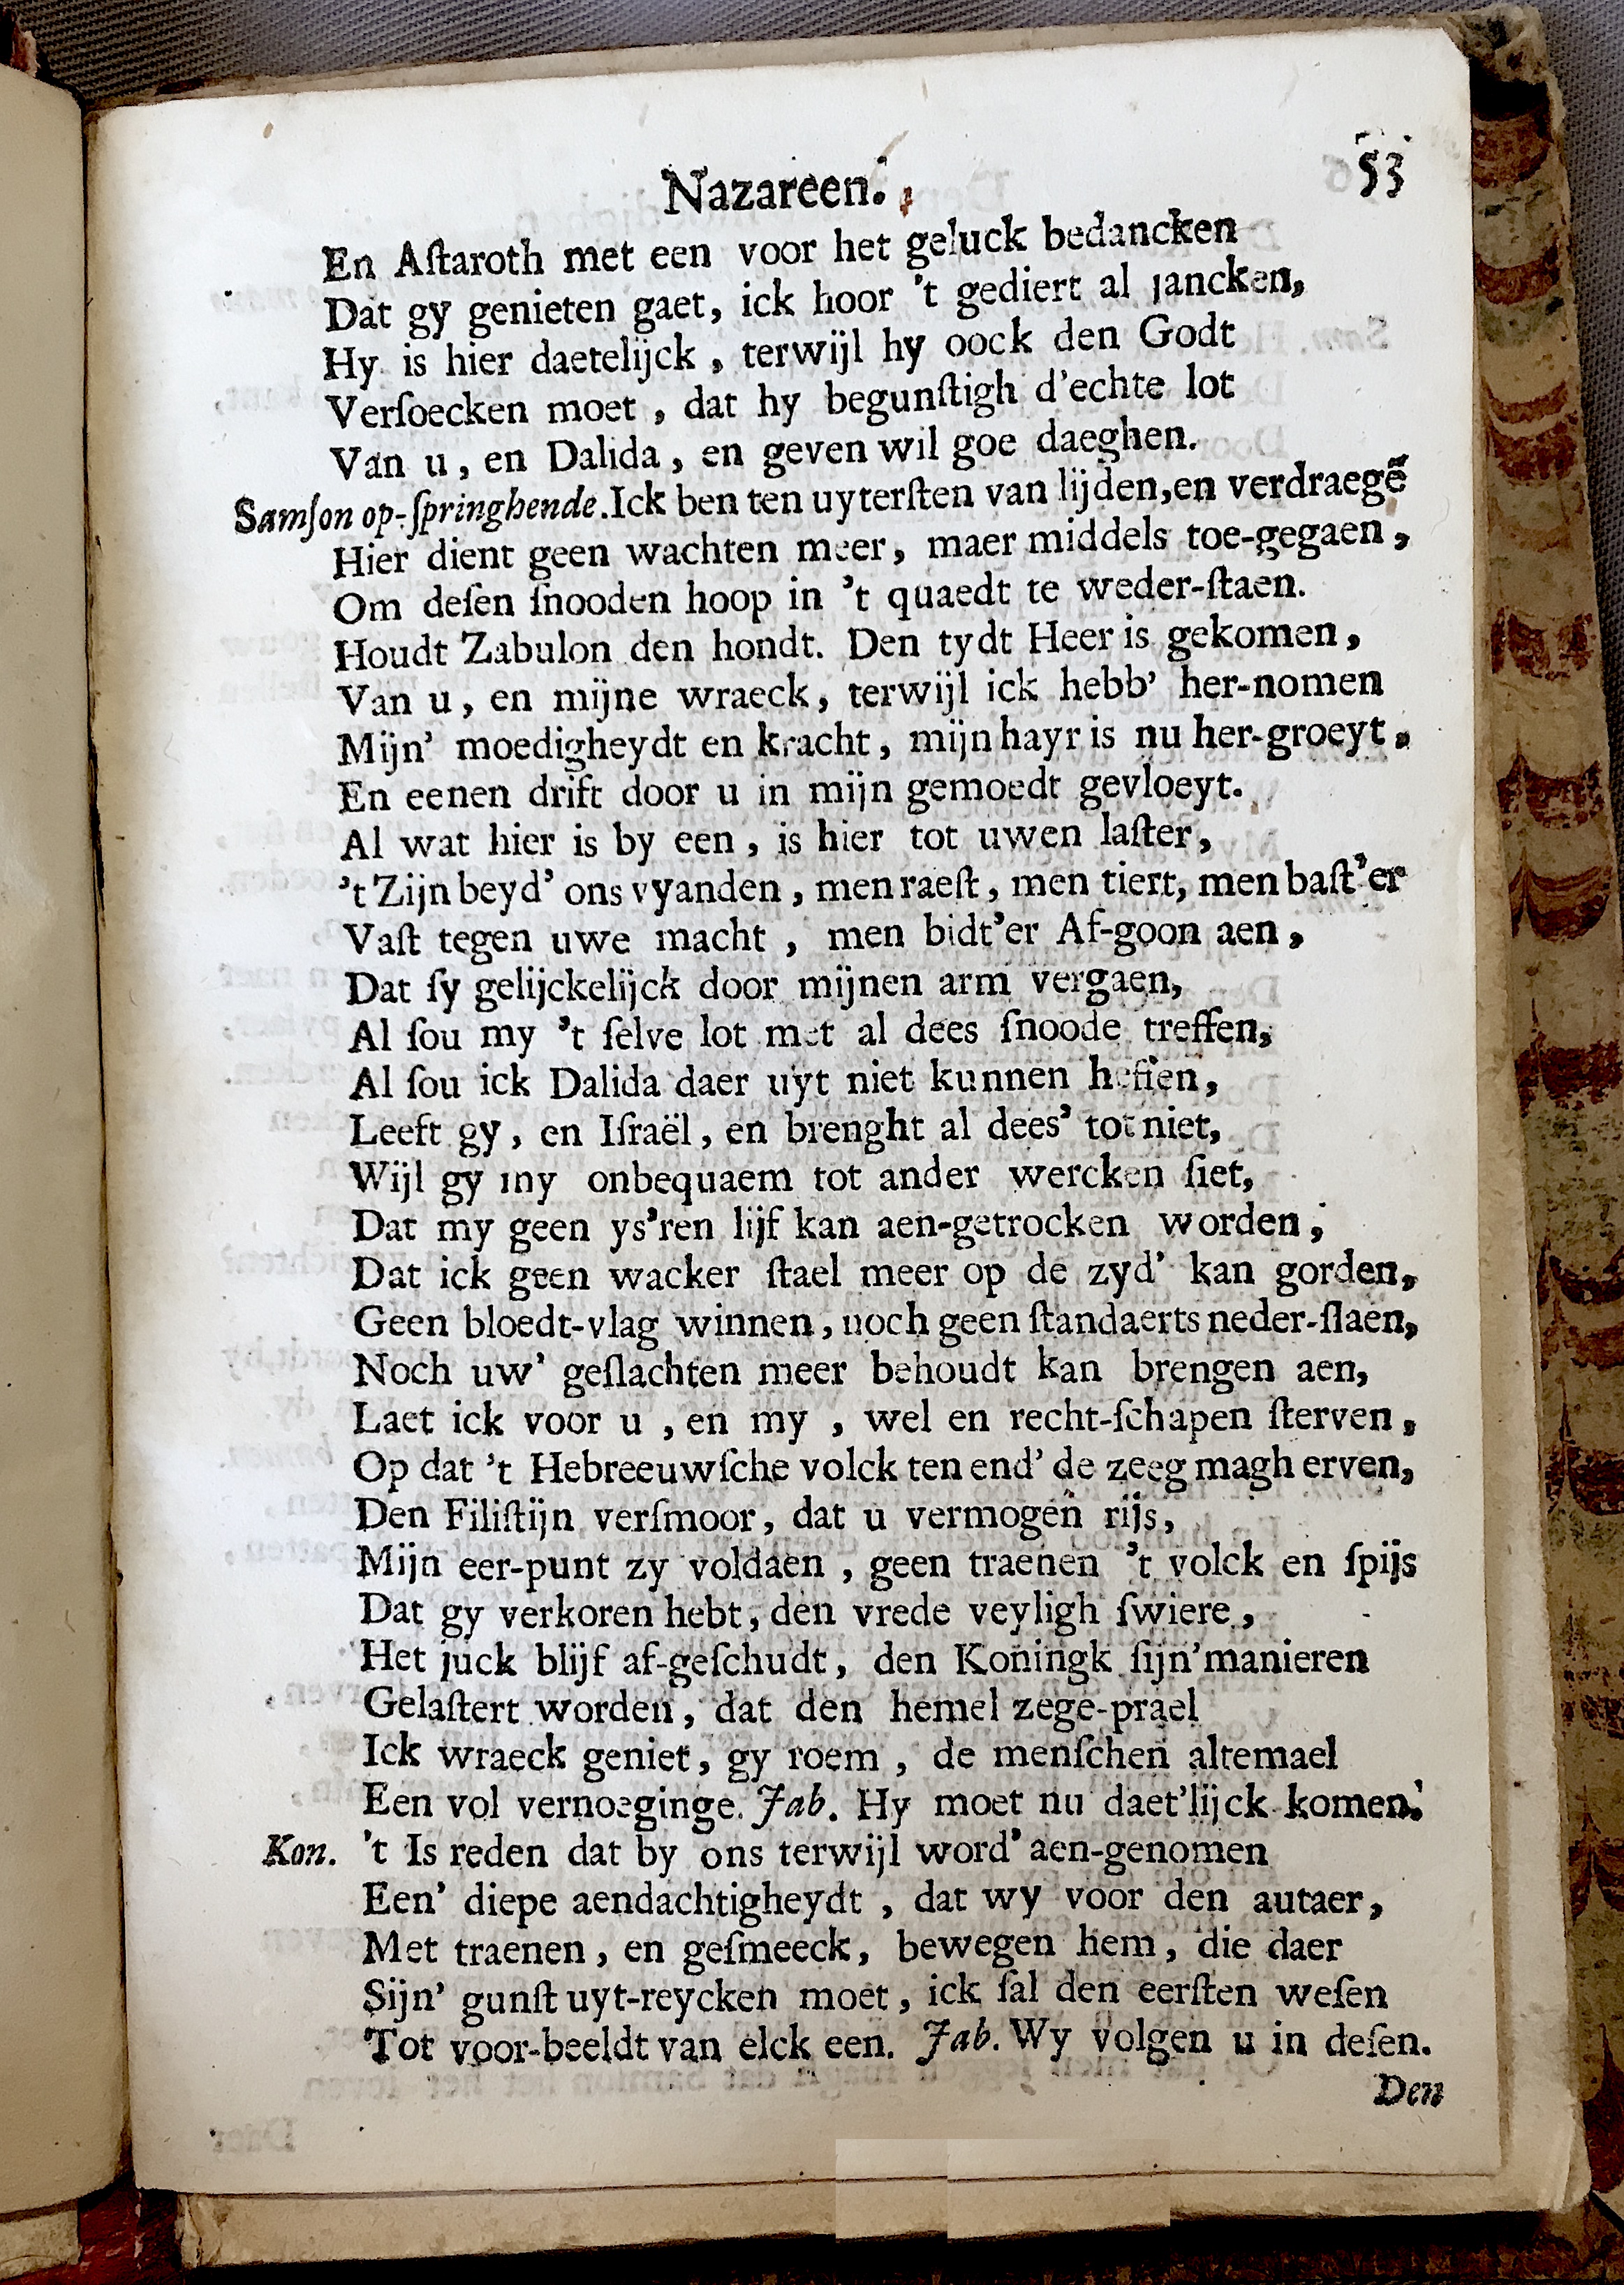 Nazareen. 53
En Aſtaroth met een voor het geluck bedancken
Dat gy genieten gaet, ick hoor 't gediert al jancken,
Hy is hier daetelijck, terwijl hy oock den Godt
Verſoecken moet, dat hy begunſtigh d'echte lot
Van u, en Dalida, en geven wil goe daeghen.
Samſon op-ſpringhende. Ick ben ten uyterſten van lijden, en verdraegẽ
Hier dient geen wachten meer, maer middels toe-gegaen,
Om deſen ſnooden hoop in 't quaedt te weder-ſtaen.
Houdt Zabulon den hondt. Den tydt Heer is gekomen,
Van u, en mijne wraeck, terwijl ick hebb' her-nomen
Mijn' moedigheydt en kracht, mijn hayr is nu her-groeyt.
En eenen drift door u in mijn gemoedt gevloeyt.
Al wat hier is by een, is hier tot uwen laſter,
't Zijn beyd' ons vyanden, men raeſt, men tiert, men baſt'er
Vaſt tegen uwe macht, men bidt'er Af-goon aen,
Dat ſy gelijckelijck door mijnen arm vergaen,
Al ſou my 't ſelve lot met al dees ſnoode treffen,
Al ſou ick Dalida daer uyt niet kunnen heffen,
Leeft gy, en Iſraël, en brenght al dees' tot niet,
Wijl gy my onbequaem tot ander wercken ſiet,
Dat my geen ys'ren lijf kan aen-getrocken worden,
Dat ick geen wacker ſtael meer op de zyd' kan gorden,
Geen bloedt-vlag winnen, noch geen ſtandaerts neder-ſlaen,
Noch uw' geſlachten meer behoudt kan brengen aen,
Laet ick voor u, en my, wel en recht-ſchapen ſterven,
Op dat 't Hebreeuwſche volck ten end' de zeeg magh erven,
Den Filiſtijn verſmoor, dat u vermogen rijs,
Mijn eer-punt zy voldaen, geen traenen 't volck en ſpijs
Dat gy verkoren hebt, den vrede veyligh ſwiere,
Het juck blijf af-geſchudt, den Koningk ſijn' manieren
Gelaſtert worden, dat den hemel zege-prael
Ick wraeck geniet, gy roem, de menſchen altemael
Een vol vernoeginge. Jab. Hy moet nu daet'lijck komen.
Kon. 't Is reden dat by ons terwijl word' aen-genomen
Een' diepe aendachtigheydt, dat wy voor den autaer,
Met traenen, en geſmeeck, bewegen hem, die daer
Sijn' gunſt uyt-reycken moet, ick ſal den eerſten weſen
Tot voor-beeldt van elck een. Jab. Wy volgen u in deſen.
Den